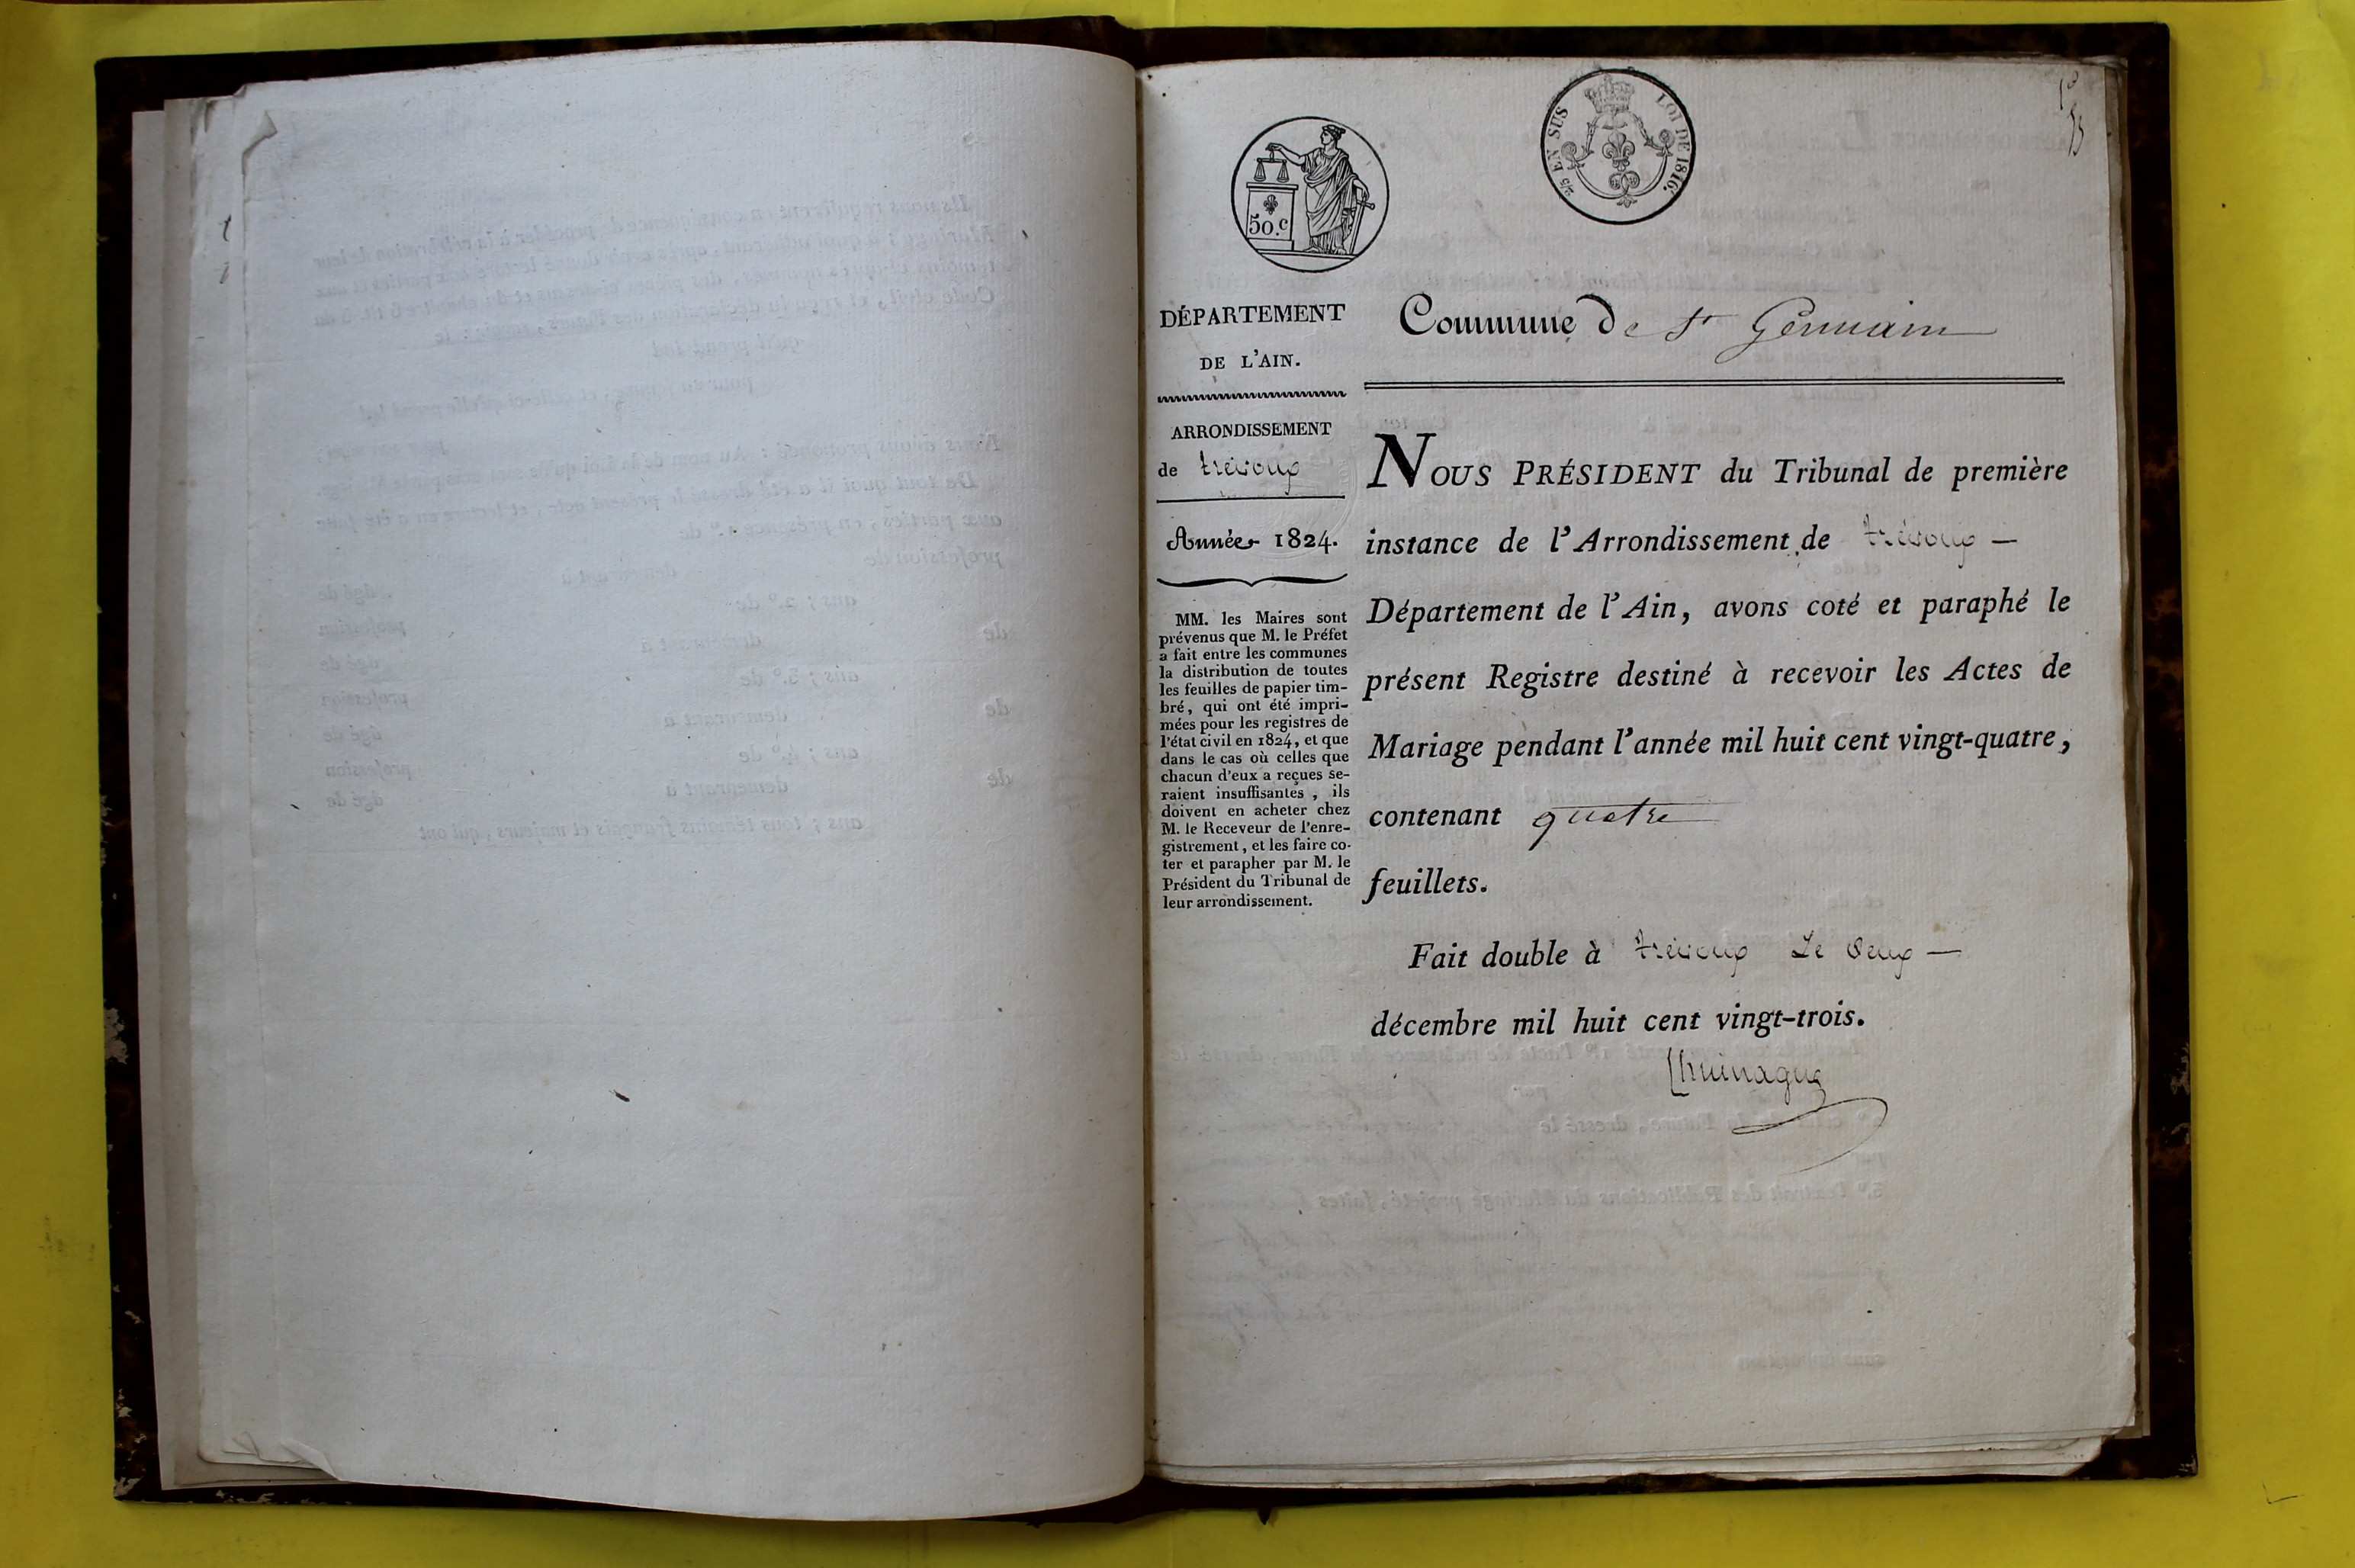 50.c
2/5 EN SUS LOI DE 1816.
DÉPARTEMENT
DE L'AIN.
ARRONDISSEMENT
de trévoux
Année 1824.
MM. les Maires sont
prévenus que M. le Préfet
a fait entre les communes
la distribution de toutes
les feuilles de papier tim-
bré, qui ont été impri-
mées pour les registres de
l'état civil en 1824, et que
dans le cas où celles que
chacun d'eux a reçues se-
raient insuffisantes, ils
doivent en acheter chez
M. le Receveur de l'enre-
gistrement, et les faire co-
ter et parapher par M. le
Président du Tribunal de
leur arrondissement.
Commune De St Germain
NOUS PRÉSIDENT du Tribunal de première
instance de l'Arrondissement de trévoux —
Département de l'Ain, avons coté et paraphé le
présent Registre destiné à recevoir les Actes de
Mariage pendant l'année mil huit cent vingt-quatre,
contenant quatre
feuillets.
Fait double à trévoux Le Deux —
décembre mil huit cent vingt-trois.